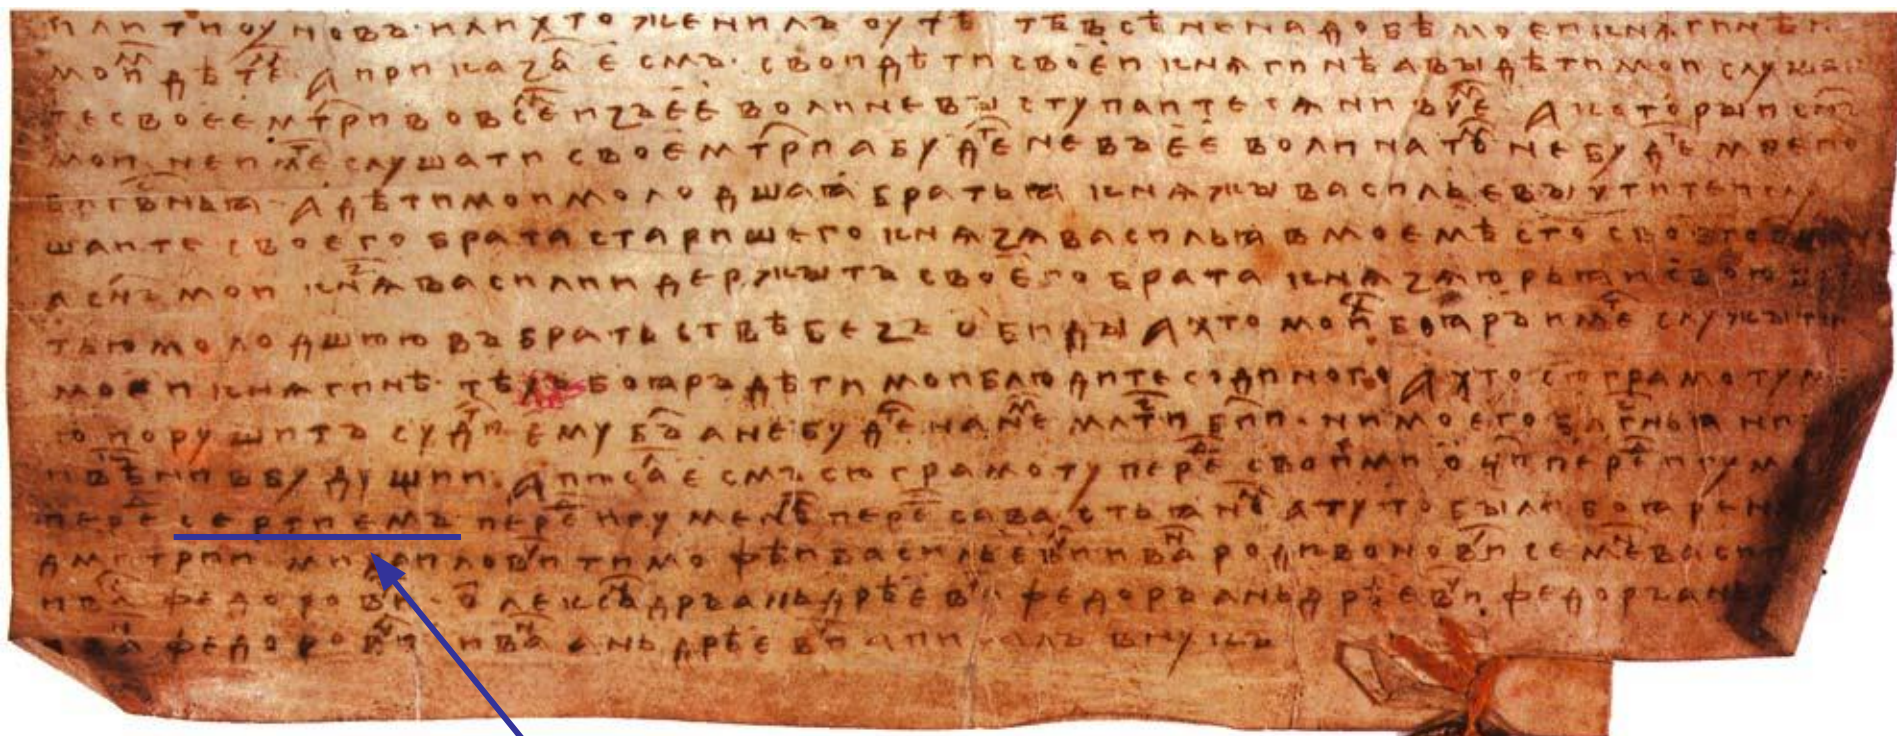 новъ или хто женилъ оу тѣ тѣ всѣ не надобѣ моеи кнѧгинѣ и
мои дѣте А приказа есмь свои дѣти своеи кнѧгинѣ а вы дѣти мои слушаи
те своее мтри во все изъ ее воли не выступаитесѧ ни в че А которыи снъ
мои не име слушати своее мтри а буде не въ ее воли на то не буде моего
блгвньꙗ А дѣти мои молодшаꙗ братьꙗ кнѧжы васильевы чтите и слу
шаите своего брата старишего кнѧзѧ васильꙗ в мое мѣсто своего
а снъ мои кнѧ василии держытъ своего брата кнѧзѧ юрьꙗ и свою бра
тью молодшюю въ братьствѣ без обиды А хто мои боꙗръ име служыти
моеи кнѧгинѣ тѣхъ боꙗръ дѣти мои блюдите с одиного А хто сю грамоту м
ю порушитъ суди ему бъ а не буде на не млти бии ни моего блгвньꙗ ни
вѣ ни в будущии А писа есмь сю грамоту пере своими оци пере игуме
пере сергиемъ пере игумено пере савастьꙗно а ту то были боꙗре н
дмитрии михаиловчи тимофѣи васильевчи ива родивоновчи семе васи
ива федоровчи олексадръ аньдрѣевчи федоръ аньдрѣевчи федоръ ань
ива федоровчи ива аньдрѣевчи а писалъ внукъ